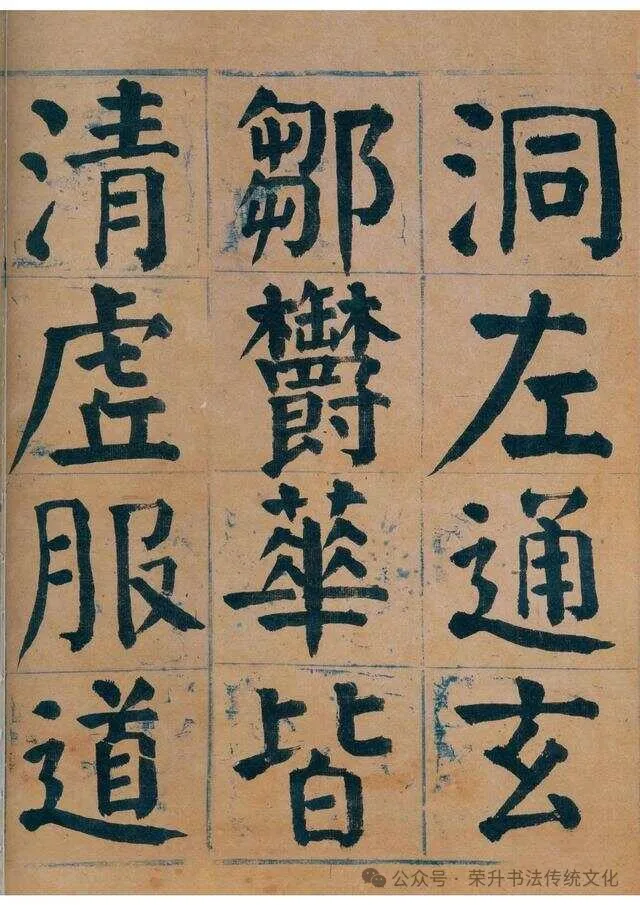 洞左通玄
鄒欝華皆
清虛服道
公众号·荣升书法传统文化